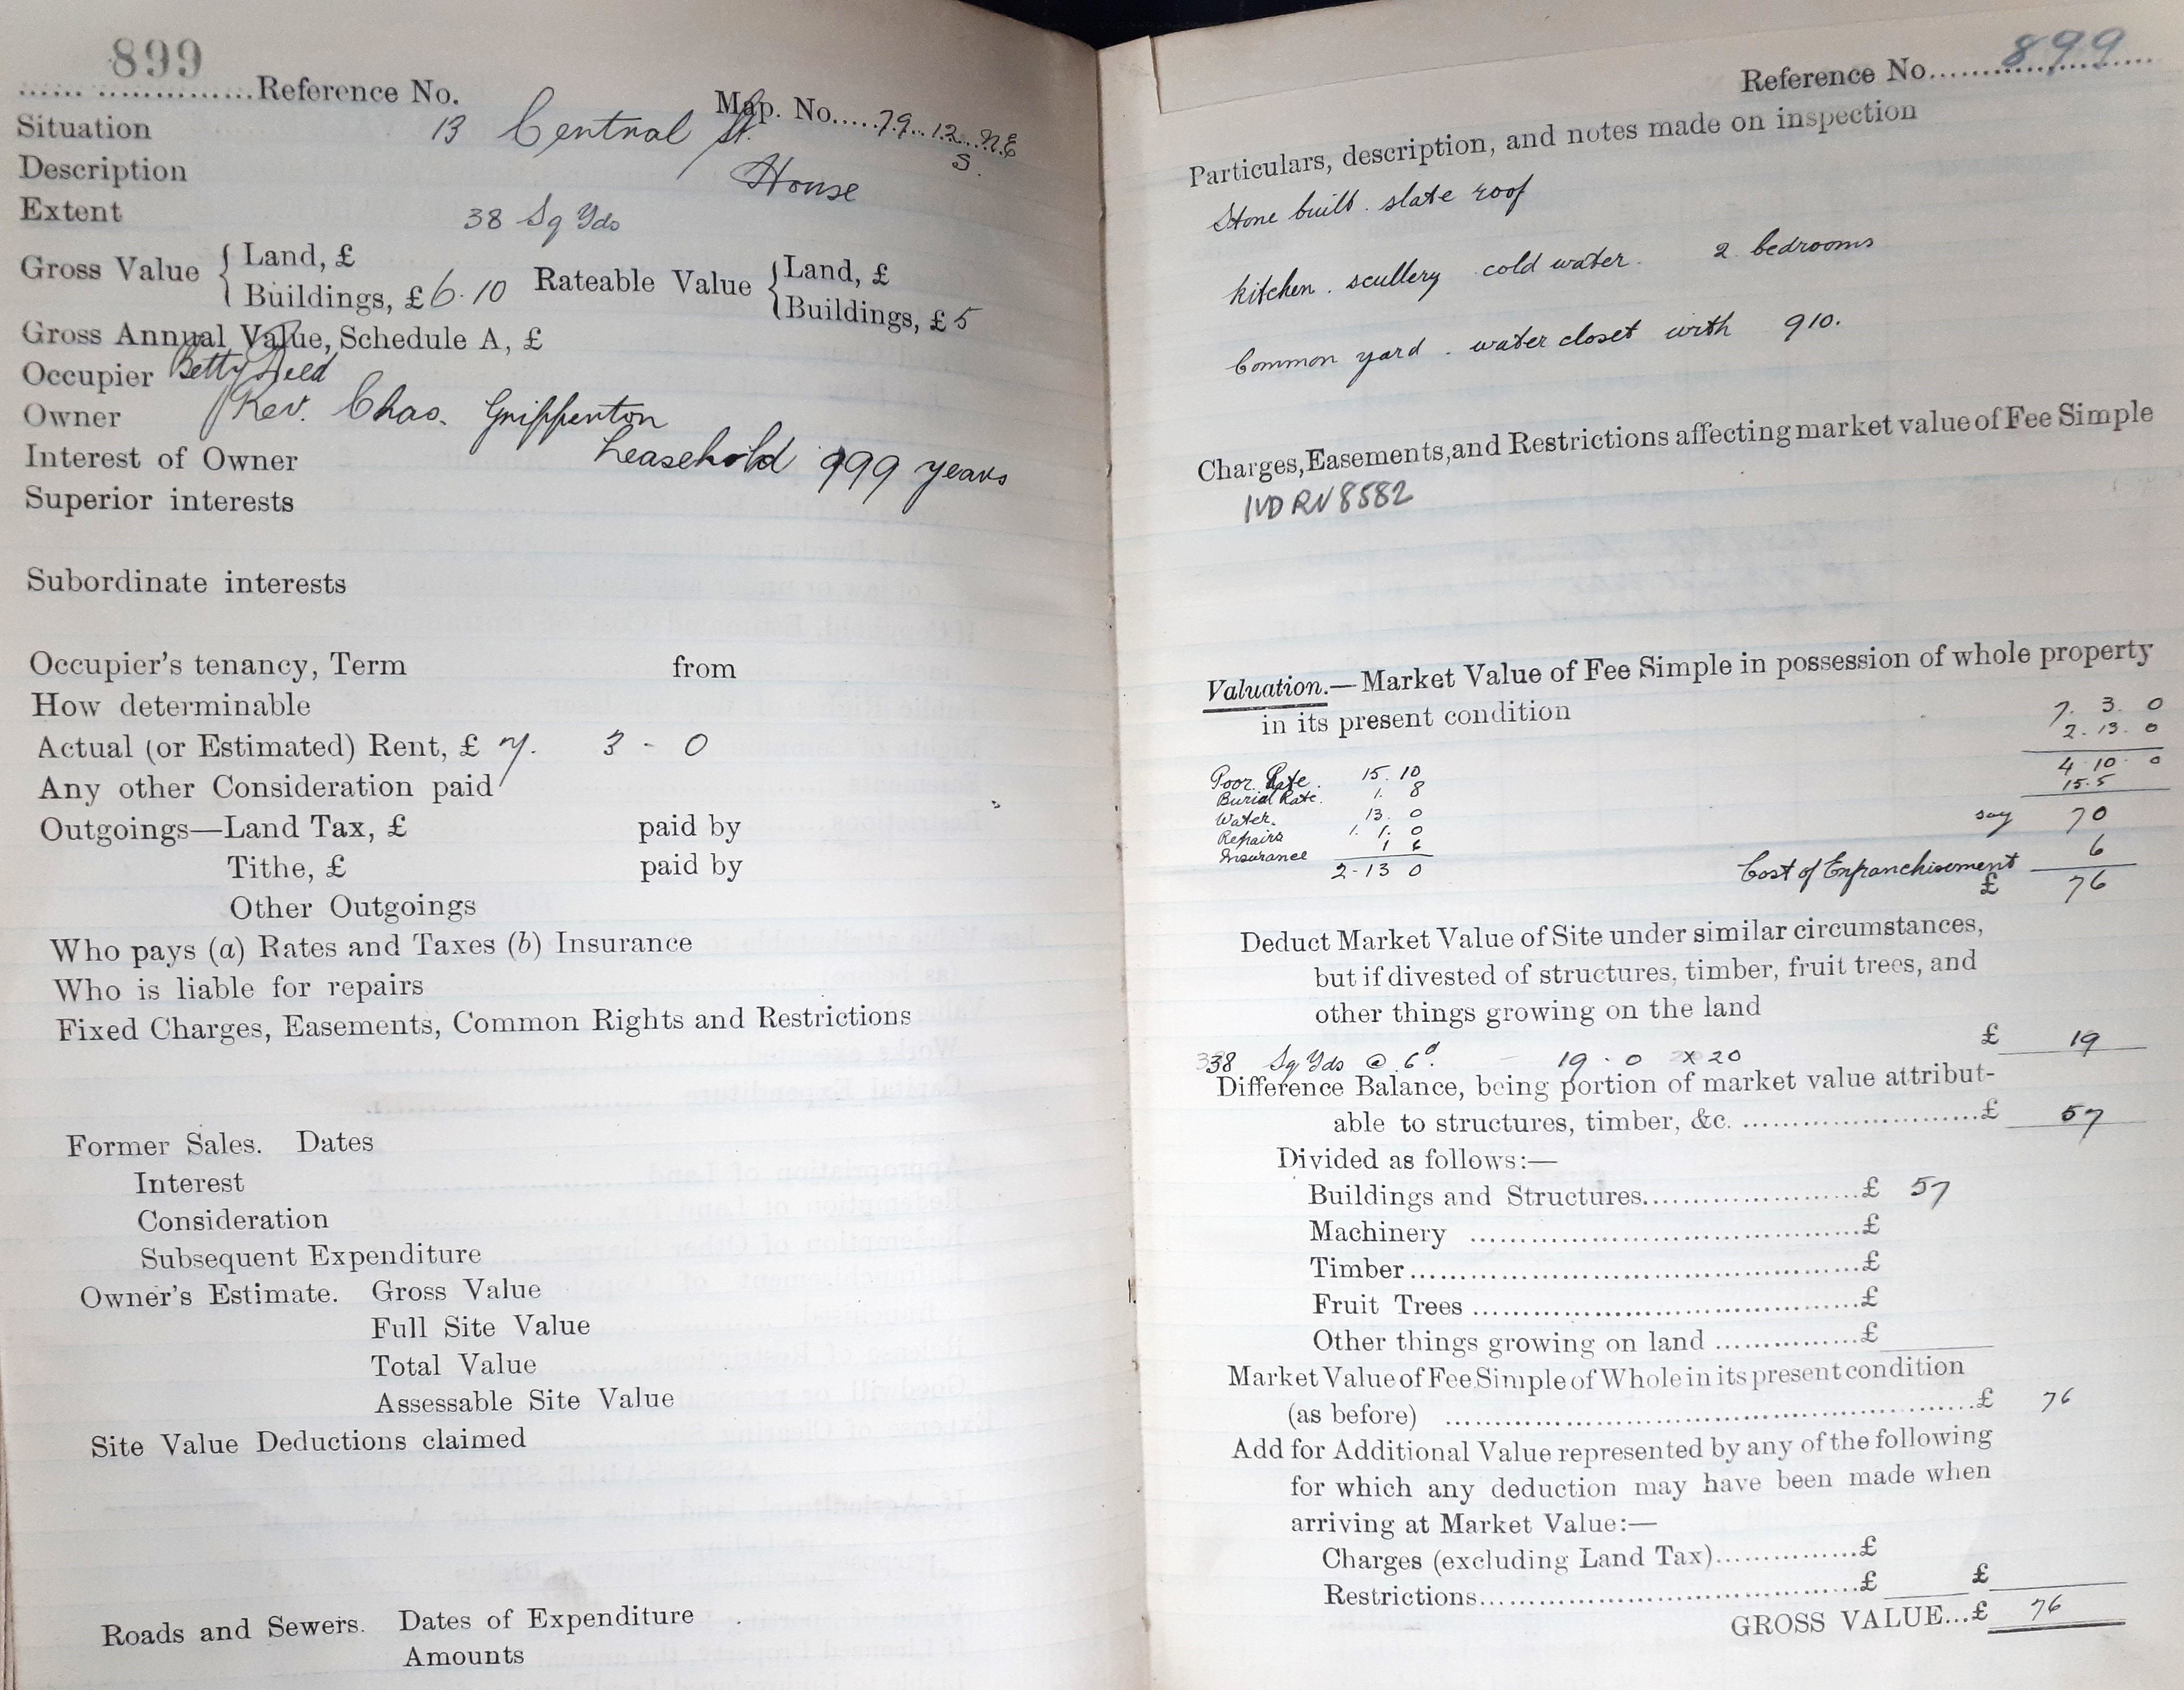 899
Reference No.
Map. No. 79. 12. N.E
S.
Situation 13 Central St.
Description House
Extent 38 Sq Yds
Gross Value { Land, £
Buildings, £ 6.10 Rateable Value { Land, £
Buildings, £ 5
Gross Annual Value, Schedule A, £
Occupier Betty
Owner Rev. Chas. Gripperton
Interest of Owner Leasehold 999 years
Superior interests
Subordinate interests
Occupier's tenancy, Term from
How determinable
Actual (or Estimated) Rent, £ 7. 3 - 0
Any other Consideration paid
Outgoings—Land Tax, £ paid by
Tithe, £ paid by
Other Outgoings
Who pays (a) Rates and Taxes (b) Insurance
Who is liable for repairs
Fixed Charges, Easements, Common Rights and Restrictions
Former Sales. Dates
Interest
Consideration
Subsequent Expenditure
Owner's Estimate. Gross Value
Full Site Value
Total Value
Assessable Site Value
Site Value Deductions claimed
Roads and Sewers. Dates of Expenditure
Amounts
Reference No. 899
Particulars, description, and notes made on inspection
Stone built. slate roof
kitchen. scullery cold water. 2 bedrooms
Common yard. water closet with 910.
Charges, Easements, and Restrictions affecting market value of Fee Simple
IVD RN 8582
Valuation.—Market Value of Fee Simple in possession of whole property
in its present condition
7. 3. 0
2. 13. 0
4 10 0
15.5
say 70
6
Cost of Enfranchisement
£ 76
Poor Rate. 15. 10
Burial Rate. 1. 8
Water. 13. 0
Repairs 1. 1. 0
Insurance 1 6
2-13 0
Deduct Market Value of Site under similar circumstances,
but if divested of structures, timber, fruit trees, and
other things growing on the land
£ 19
38 Sq Yds @ 6d. 19 . 0 x 20
Difference Balance, being portion of market value attribut-
able to structures, timber, &c. £ 57
Divided as follows:—
Buildings and Structures £ 57
Machinery £
Timber £
Fruit Trees £
Other things growing on land £
Market Value of Fee Simple of Whole in its present condition
(as before) £ 76
Add for Additional Value represented by any of the following
for which any deduction may have been made when
arriving at Market Value:—
Charges (excluding Land Tax) £
Restrictions £ £
GROSS VALUE...£ 76